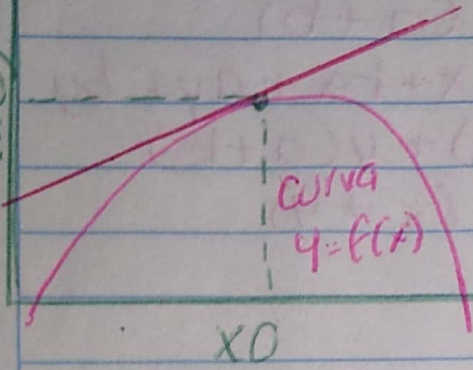 curva
y=f(x)
x0